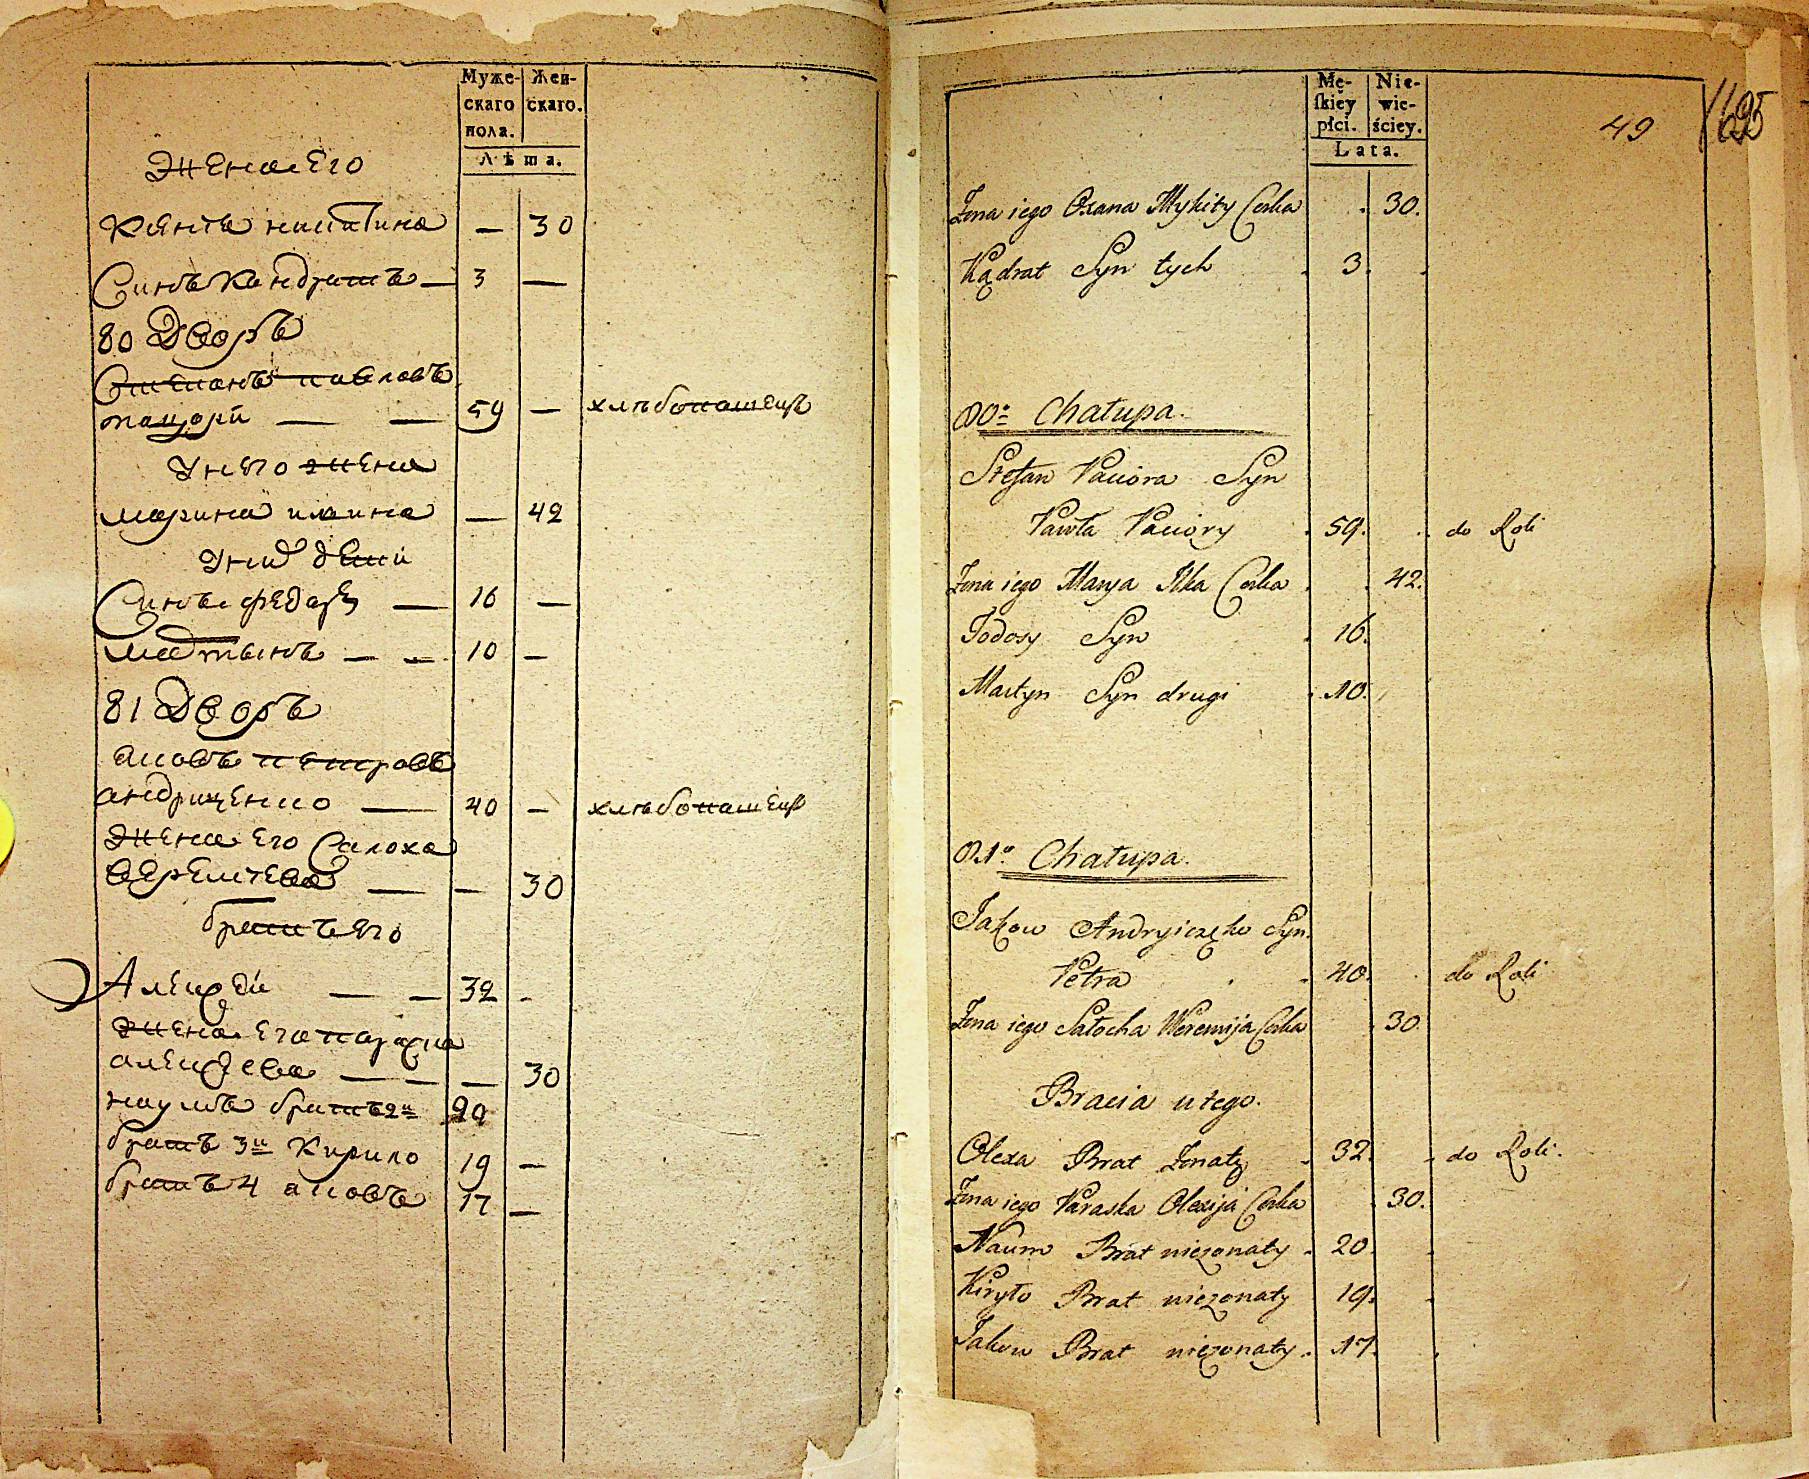 Муже-
скаго
пола.
Жен-
скаго.
Лѣта.
жена его
никитина — 30
Синъ Кандратъ — 3 —
80 Дворъ
Степанъ павловъ
пацори — — 59 — хлѣбопашецъ
унего жена
марина илкина — 42
уних дети
Синъ федосъ — 16 —
мартынъ — — 10 —
81 Дворъ
яковъ петровъ
андрищенко — 40 — хлѣбопашецъ
жена его Салоха
веремѣева — — 30
братъ его
Алексѣй — — 32 -
жена его параска
алексѣева — — — 30
наумъ братъ 2й 20
братъ 3й Кирило 19 —
братъ 4 яковъ 17 —
Mę-
skiéy
płci.
Nie-
wie-
ściey.
Lata.
49
1625
Żona iego Oxana Mykity Corka . 30.
Kądrat Syn tych . 3. .
80a Chałupa.
Stefan Paciora Syn
Pawła Paciory . 59. . do Roli
Żona iego Marya Ilka Corka . . 42.
Fodosy Syn . 16.
Martyn Syn drugi . 10.
81a Chałupa.
Jakow Andryiczęko Syn.
Petra . . 40. . do Roli
Żona iego Sałocha Weremija Corka . 30.
Bracia u tego.
Olexa Brat Żonaty . 32. . do Roli.
Żona iego Paraska Olexija Corka . 30.
Naum Brat nieżonaty . 20. .
Kiryło Brat nieżonaty 19. .
Jakow Brat nieżonaty . 17. .